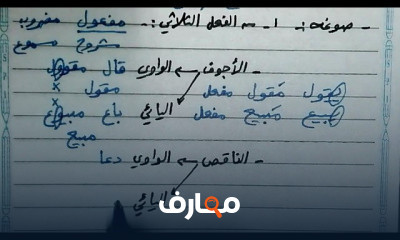 - صوغه :- ١- من الفعل الثلاثي :- مفعول مضروب
مشروح مسموع
- الأجوف من الواوي قال مقوول
يقول مَقول مفعل مقول
يبيع مَبيع مفعل اليائي باع مبيوع
مبيع
- الناقص من الواوي دعا
اليائي
معارف